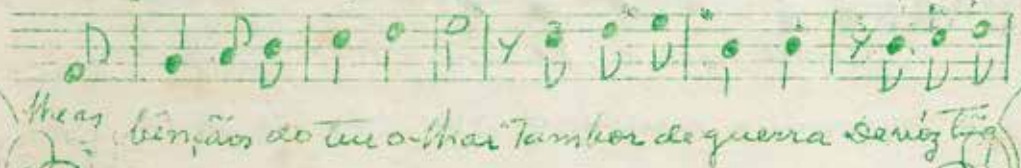 lheas bênçãos do teu olhar Tambor de guerra